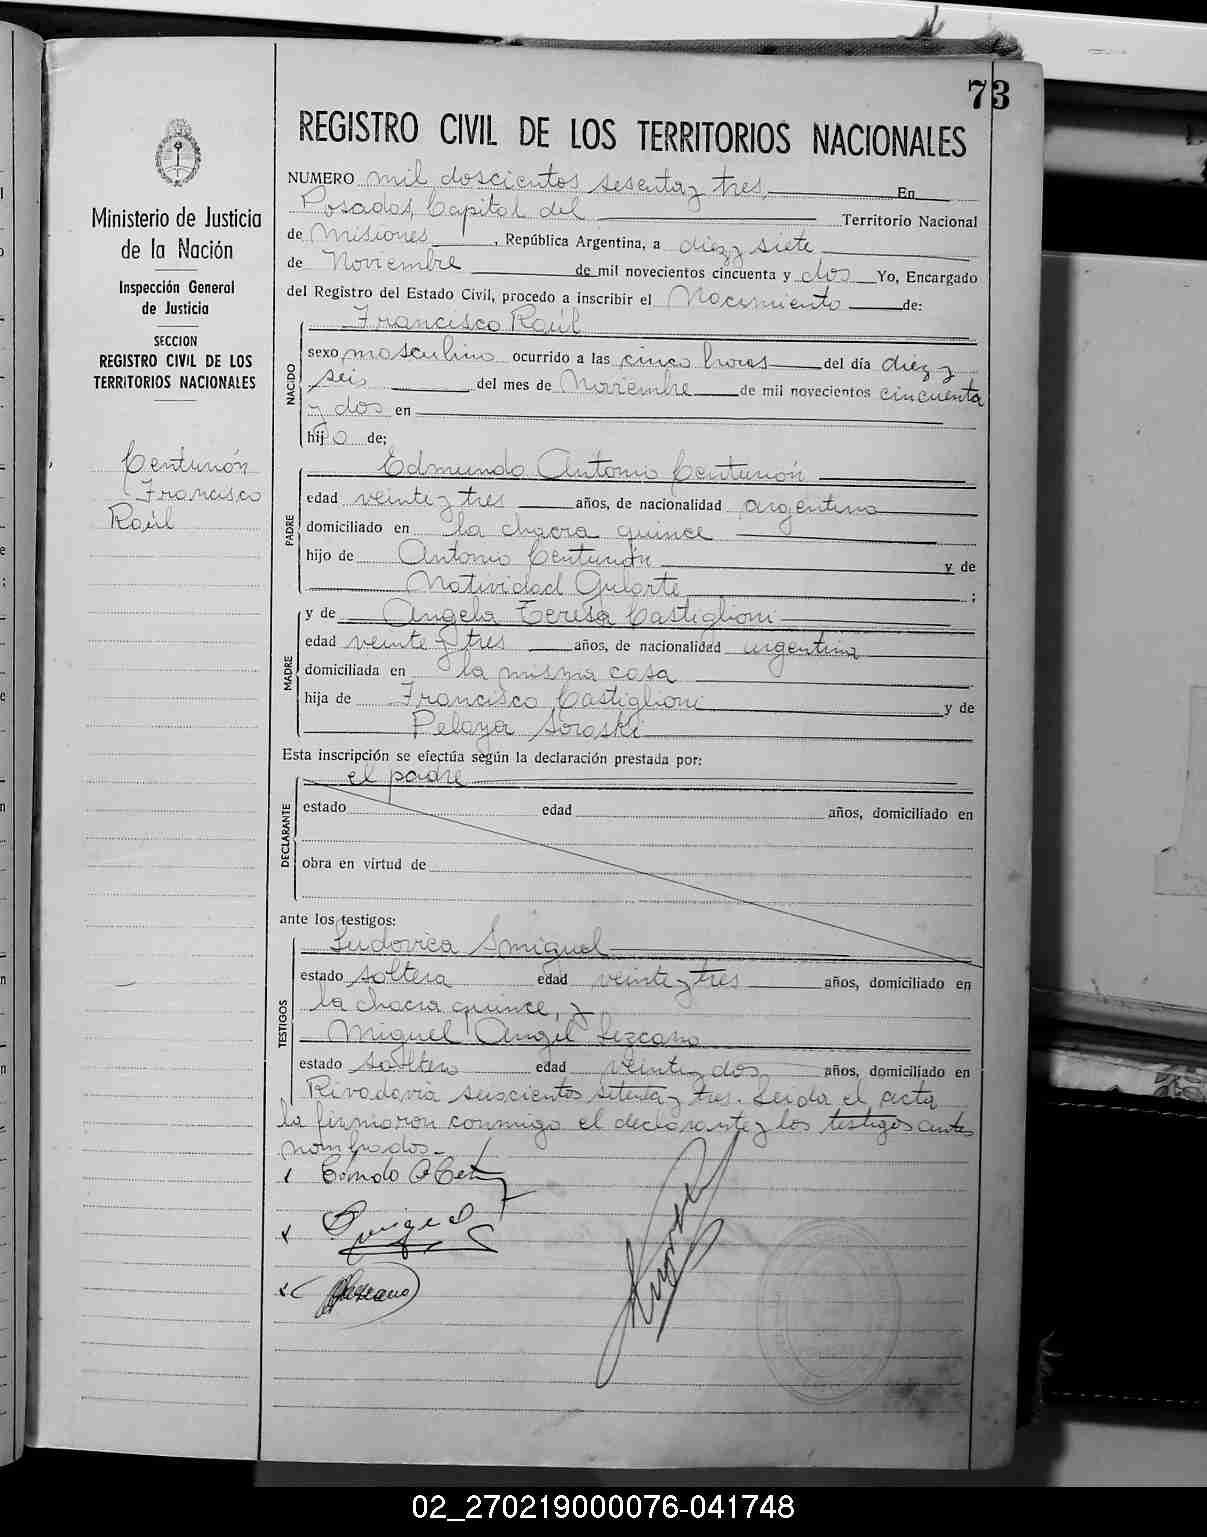 73
REGISTRO CIVIL DE LOS TERRITORIOS NACIONALES
Ministerio de Justicia
de la Nación
Inspección General
de Justicia
SECCION
REGISTRO CIVIL DE LOS
TERRITORIOS NACIONALES
Centurión
Francisco
Raúl
NUMERO mil doscientos sesenta y tres En
Posadas, Capital del Territorio Nacional
de Misiones, República Argentina, a diez y siete
de Noviembre de mil novecientos cincuenta y dos Yo, Encargado
del Registro del Estado Civil, procedo a inscribir el Nacimiento de:
Francisco Raúl
NACIDO
sexo masculino ocurrido a las cinco horas del día diez y
seis del mes de Noviembre de mil novecientos cincuenta
y dos en
hijo de;
Edmundo Antonio Centurión
PADRE
edad veinte y tres años, de nacionalidad argentina
domiciliado en la chacra quince
hijo de Antonio Centurión y de
Natividad Gularte;
y de Angela Teresa Castiglioni
MADRE
edad veinte y tres años, de nacionalidad argentina
domiciliada en la misma casa
hija de Francisco Castiglioni y de
Pelaya Soroski
Esta inscripción se efectúa según la declaración prestada por:
el padre
DECLARANTE
estado edad años, domiciliado en
obra en virtud de
ante los testigos:
Ludovica Smiguel
TESTIGOS
estado soltera edad veinte y tres años, domiciliado en
la chacra quince, y
Miguel Angel Lezcano
estado soltero edad veinte y dos años, domiciliado en
Rivadavia seiscientos setenta y tres. Leida el acta
la firmaron conmigo el declarante y los testigos antes
nombrados.-
02_270219000076-041748